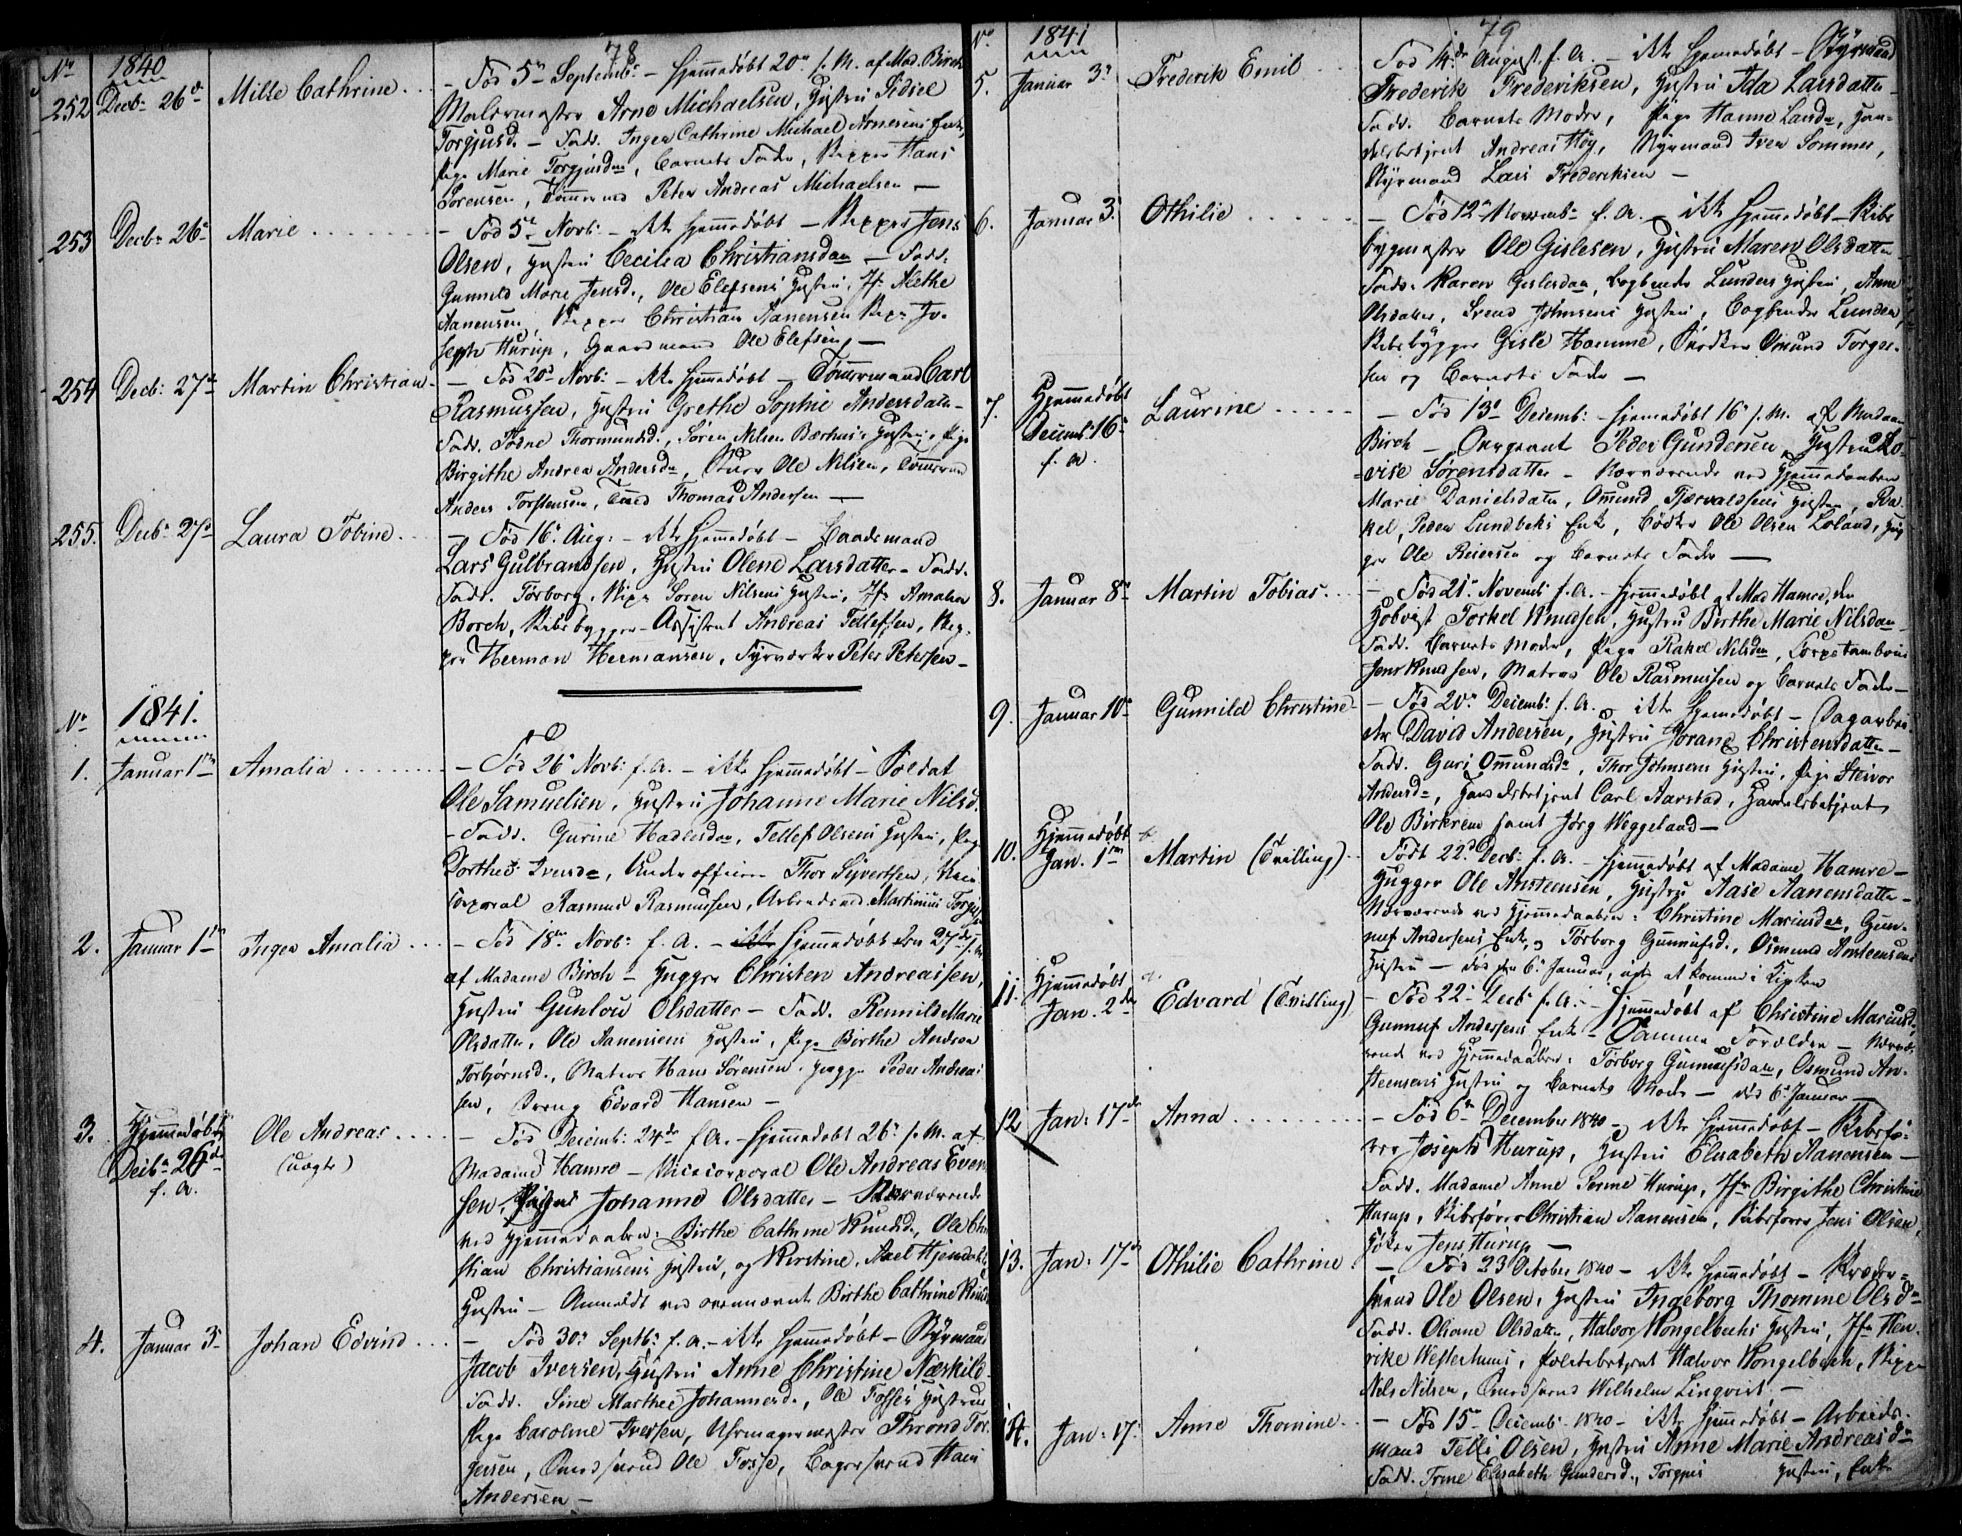 78
No
1840
252
Decbr 26de
Mille Cathrine
- Fød 5te Septembr - hjemmedøbt 20de s. M. af Mad. Birch
Malermester Arne Michaelsen, Hustru Sidsel
Torgjusd. - Fadd. Inger Cathrine Michael Arnesens Enke,
Pige Marie Torgjusdr, Barnets Fader, Skipper Hans
Sørensen, Tømmermd Peter Andreas Michaelsen -
253
Decbr 26de
Marie
- Fød 5te Novbr - ikke hjemmedøbt - Skipper Jens
Olsen, Hustru Cecilia Christiansdtr - Fadd.
Gunnild Marie Jensd., Ole Elefsens Hustru, Jfr Alethe
Aanensen, Skipper Christian Aanensen, Skip. Jo-
seph Hurup, Gaardmand Ole Elefsen -
254
Decbr 27de
Martin Christian
- Fød 20de Novbr - ikke hjemmedøbt - Tømmermand Carl
Rasmussen, Hustru Grethe Sophie Andersdatter -
Fadd. Thormundsd., Søren Nilsen Hustru, Pige
Birgithe Andrea Andersdr, Ole Nilsen, Tømmermd
Anders Torstensen, Thomas Andersen -
255.
Decbr 27de
Laura Tobine
- Fød 16de Aug. - ikke hjemmedøbt - Baadsmand
Lars Gulbrandsen, Hustru Olene Larsdatter - Fadd.
Fadd. Torborg, Skipr Søren Nilsens Hustru, Jfr Amalia
Borch, Skibsbygger-Assistent Andreas Tellefsen, Skip-
per Herman Hermansen, Peter Petersen -
No
1841.
1.
Januar 1ste
Amalia
- Fød 26de Novbr f. A. - ikke hjemmedøbt - Soldat
Ole Samuelsen, Hustru Johanne Marie Nilsd.
- Fadd. Gurine Tellef Olsens Hustru, Pige
Dorthea Iversdr, Underofficeer Thor Sivertsen, Vice
corporal Rasmus Rasmussen, Arbeidsmd Martinius
2.
Januar 1ste
Inger Amalia
- Fød 18de Novbr f. A. - ikke hjemmedøbt den 27de s. M.
af Madame Birch - Hugger Christen Andreassen,
Hustru Gunlou Olsdatter - Fadd. Rennild Marie
Olsdatter, Ole Aanensens Hustru, Pige Birthe Andrea
Torbjørnsd., Matros Hans Sørensen, Hugger Peder Andreas-
sen, Dreng Edvard Hansen -
3.
Hjemmedøbt
Decbr 26de
f. A.
Ole Andreas
(uægte)
- Fød Decembr 24de f. A. - hjemmedøbt 26de s. M. af
Madame Hamre - Vicecorporal Ole Andreas Even-
sen, Pigen Johanne Olsdatter - Nærværende
ved Hjemmedaaben: Birthe Cathrine Knudsd., Ole Chri-
stian Christiansens Hustru, og Kirstine, Axel
Hustru - Anmeldt ved ovennævnte Birthe Cathrine Knudsd
4.
Januar 3de
Johan Edvind
- Fød 30te Septbr f. A. - ikke hjemmedøbt - Styrmand
Jacob Iversen, Hustru Anne Christine Næskild
Fadd. Sine Marthea Johannesd., Ole Fosses Hustru
Pige Caroline Iversen, Uhrmagermester Thrond Tor-
gersen, Ole Fosse, Bagersvend Hans
Andersen -
79
No
1841
5.
Januar 3de
Frederik Emil
Fød 14de August f. A. - ikke hjemmedøbt - Styrmand
Frederik Frederiksen, Hustru Ida Larsdatter
Fadd. Barnets Moder, Pige Hanne Larsdr, Han-
delsbetjent Andreas Høy, Styrmand Iver Sommer,
Styrmand Lars Frederiksen -
6.
Januar 3de
Othilie
- Fød 12te Novembr f. A. - ikke hjemmedøbt - Skibs
bygmester Ole Gislesen, Hustru Maren Olsdatter
Fadd. Karen Gislesdr, Bogbinder Lunders Hustru, Anne
Olsdatter, Svend Johnsens Hustru, Bogbinder Lunder,
Skibsbygger Gisle Hamme, Snedker Omund Torger-
sen og Barnets Fader -
7.
Hjemmedøbt
Decembr 16de
f. A.
Laurine
- Fød 13de Decembr - hjemmedøbt 16de s. M. af Madame
Birch - Sergeant Peder Gundersen, Hustru Lo-
vise Sørensdatter - Nærværende ved Hjemmedaaben
Marie Danielsdatr, Omund Hustru, Ra-
kel, Peder Lundbeks Enke, Bødker Ole Olsen Loland, Hug
ger Ole Reiersen og Barnets Fader -
8.
Januar 8de
Martin Tobias
- Fød 21de Novembr f. A. - hjemmedøbt af Mad Hamre, den
Torkel Knudsen, Hustru Birthe Marie Nilsdtr
Fadd. Barnets Moder, Pige Rakel Nilsdtr, Corpstambour
Jens Knudsen, Matros Ole Rasmussen og Barnets Fader -
9.
Januar 10de
Gunnild Christine
- Fød 20de Decembr f. A. - ikke hjemmedøbt - Sagarbei-
der David Andersen, Hustru Jorand Christensdatter -
Fadd. Guri Omundsdr, Thor Johnsens Hustru, Pige Steivor
Andersdr, Handelsbetjent Carl Aarstad, Handelsbetjent
Ole Birkrem samt Jørg Weggeland -
10.
Hjemmedøbt
Jan. 1ste
Martin (Tvilling)
Født 22de Decbr f. A. - hjemmedøbt af Madame Hamre -
Hugger Ole Aanensdatter -
Hustru Aase
Nærværende ved Hjemmedaaben: Christine Mariusdr, Gun-
nuf Andersens Enke, og Torborg Gunnufsd., Osmund Arnsteensens
Hustru - død den 6te Januar, uden at komme i Kirken
11.
Hjemmedøbt
Jan. 2den
Edvard (Tvilling)
- Fød 22de Decbr f. A. - hjemmedøbt af Christine Mariusd
Gunnuf Andersens Enke - Samme Forældre - Nærvæ-
rende ved Hjemmedaaben: Torborg Gunnufsdatr, Osmund Arn-
steensens Hustru og Barnets Moder - død 6te Januar -
12
Jan. 17de
Anna
- Fød 6te December 1840 - ikke hjemmedøbt - Skibsfø-
rer Joseph Hurup, Hustru Elisabeth Aanensen -
Fadd. Madame Anne Hurup, Jfr Birgithe Christine
Hurup, Skibsfører Christian Aanensen, Skibsfører Jens Olsen,
Jens Hurup -
13.
Jan. 17de
Othilie Cathrine
- Fød 23 October 1840 - ikke hjemmedøbt - Skrædder-
svend Ole Olsen, Hustru Ingeborg Thomine Olsdr
Fadd. Olsdatter, Halvor Kongelbechs Hustru, Jfr Hen-
rike Politiebetjent Halvor Kongelbech, Skipr
Nils Nilsen, Wilhelm Linqvist -
14.
Jan. 17de
Anne Thomine
- Fød 15de Decembr 1840 - ikke hjemmedøbt - Arbeids-
mand Tellef Olsen, Hustru Anne Marie Andreasdr
Fadd. Trine Elisabeth Gundersd., Torgius Hustru, Enke